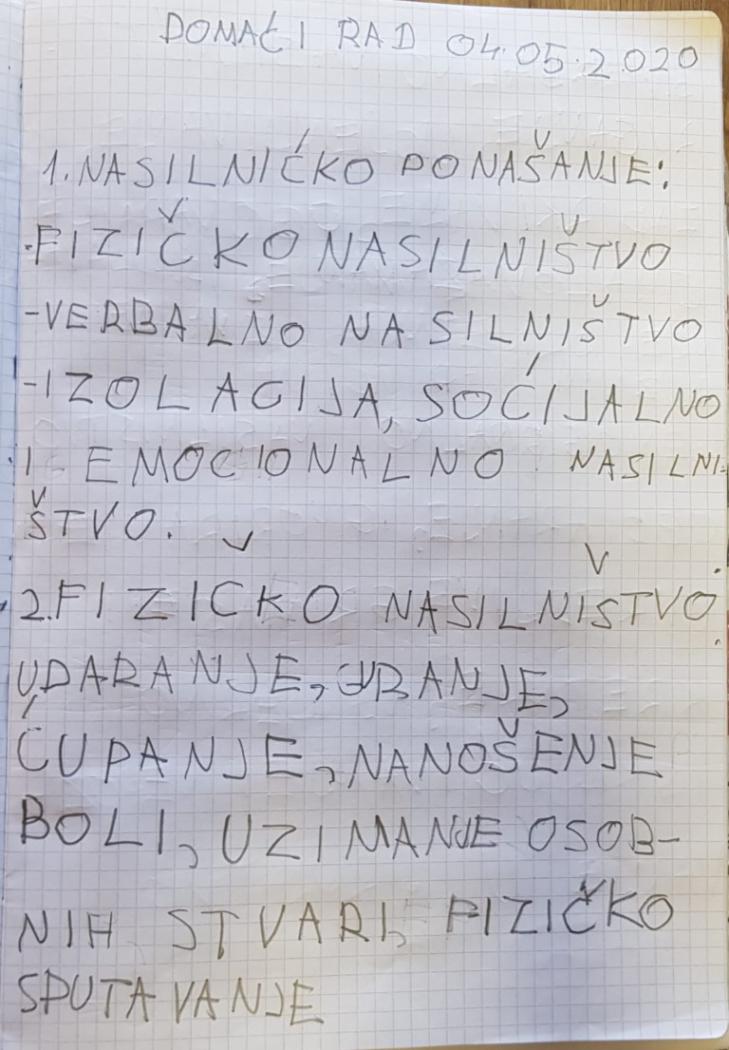 DOMAĆI RAD 04.05.2020
1. NASILNIĆKO PONAŠANJE:
-FIZIČKO NASILNIŠTVO
-VERBALNO NASILNIŠTVO
-IZOLACIJA, SOĆIJALNO
I EMOCIONALNO NASILNI-
ŠTVO.
2. FIZIČKO NASILNIŠTVO:
UDARANJE, GURANJE,
ĆUPANJE, NANOŠENJE
BOLI, UZIMANJE OSOB-
NIH STVARI, FIZIČKO
SPUTAVANJE